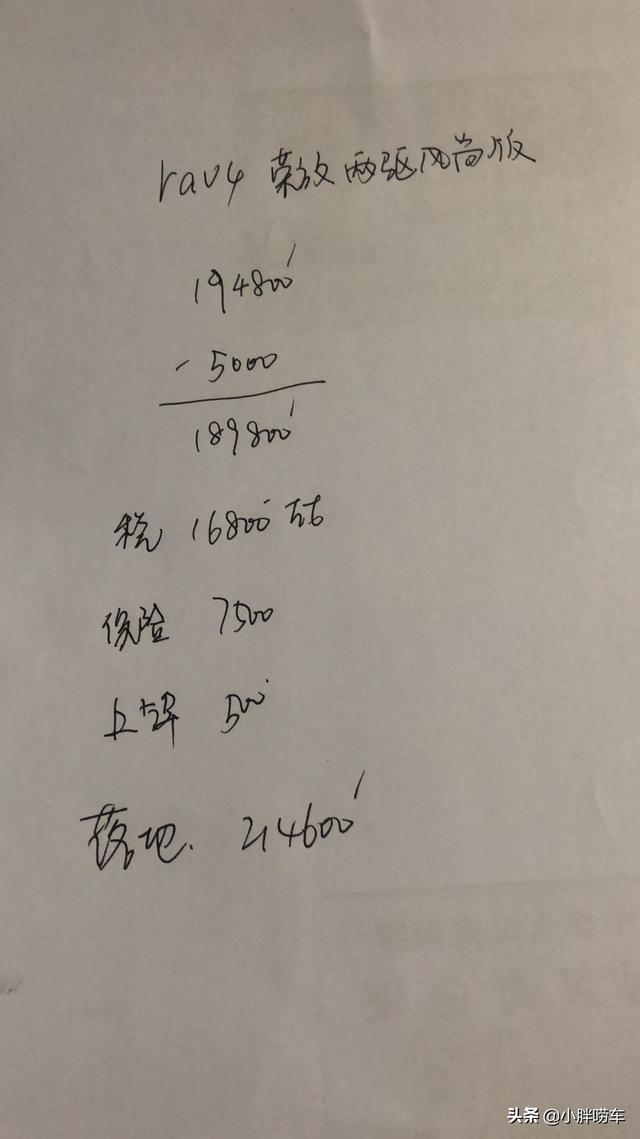 rav4 荣放两驱风尚版
194800
- 5000
189800
税 16800 左右
保险 7500
上牌 500
落地. 214600
头条 @小胖唠车